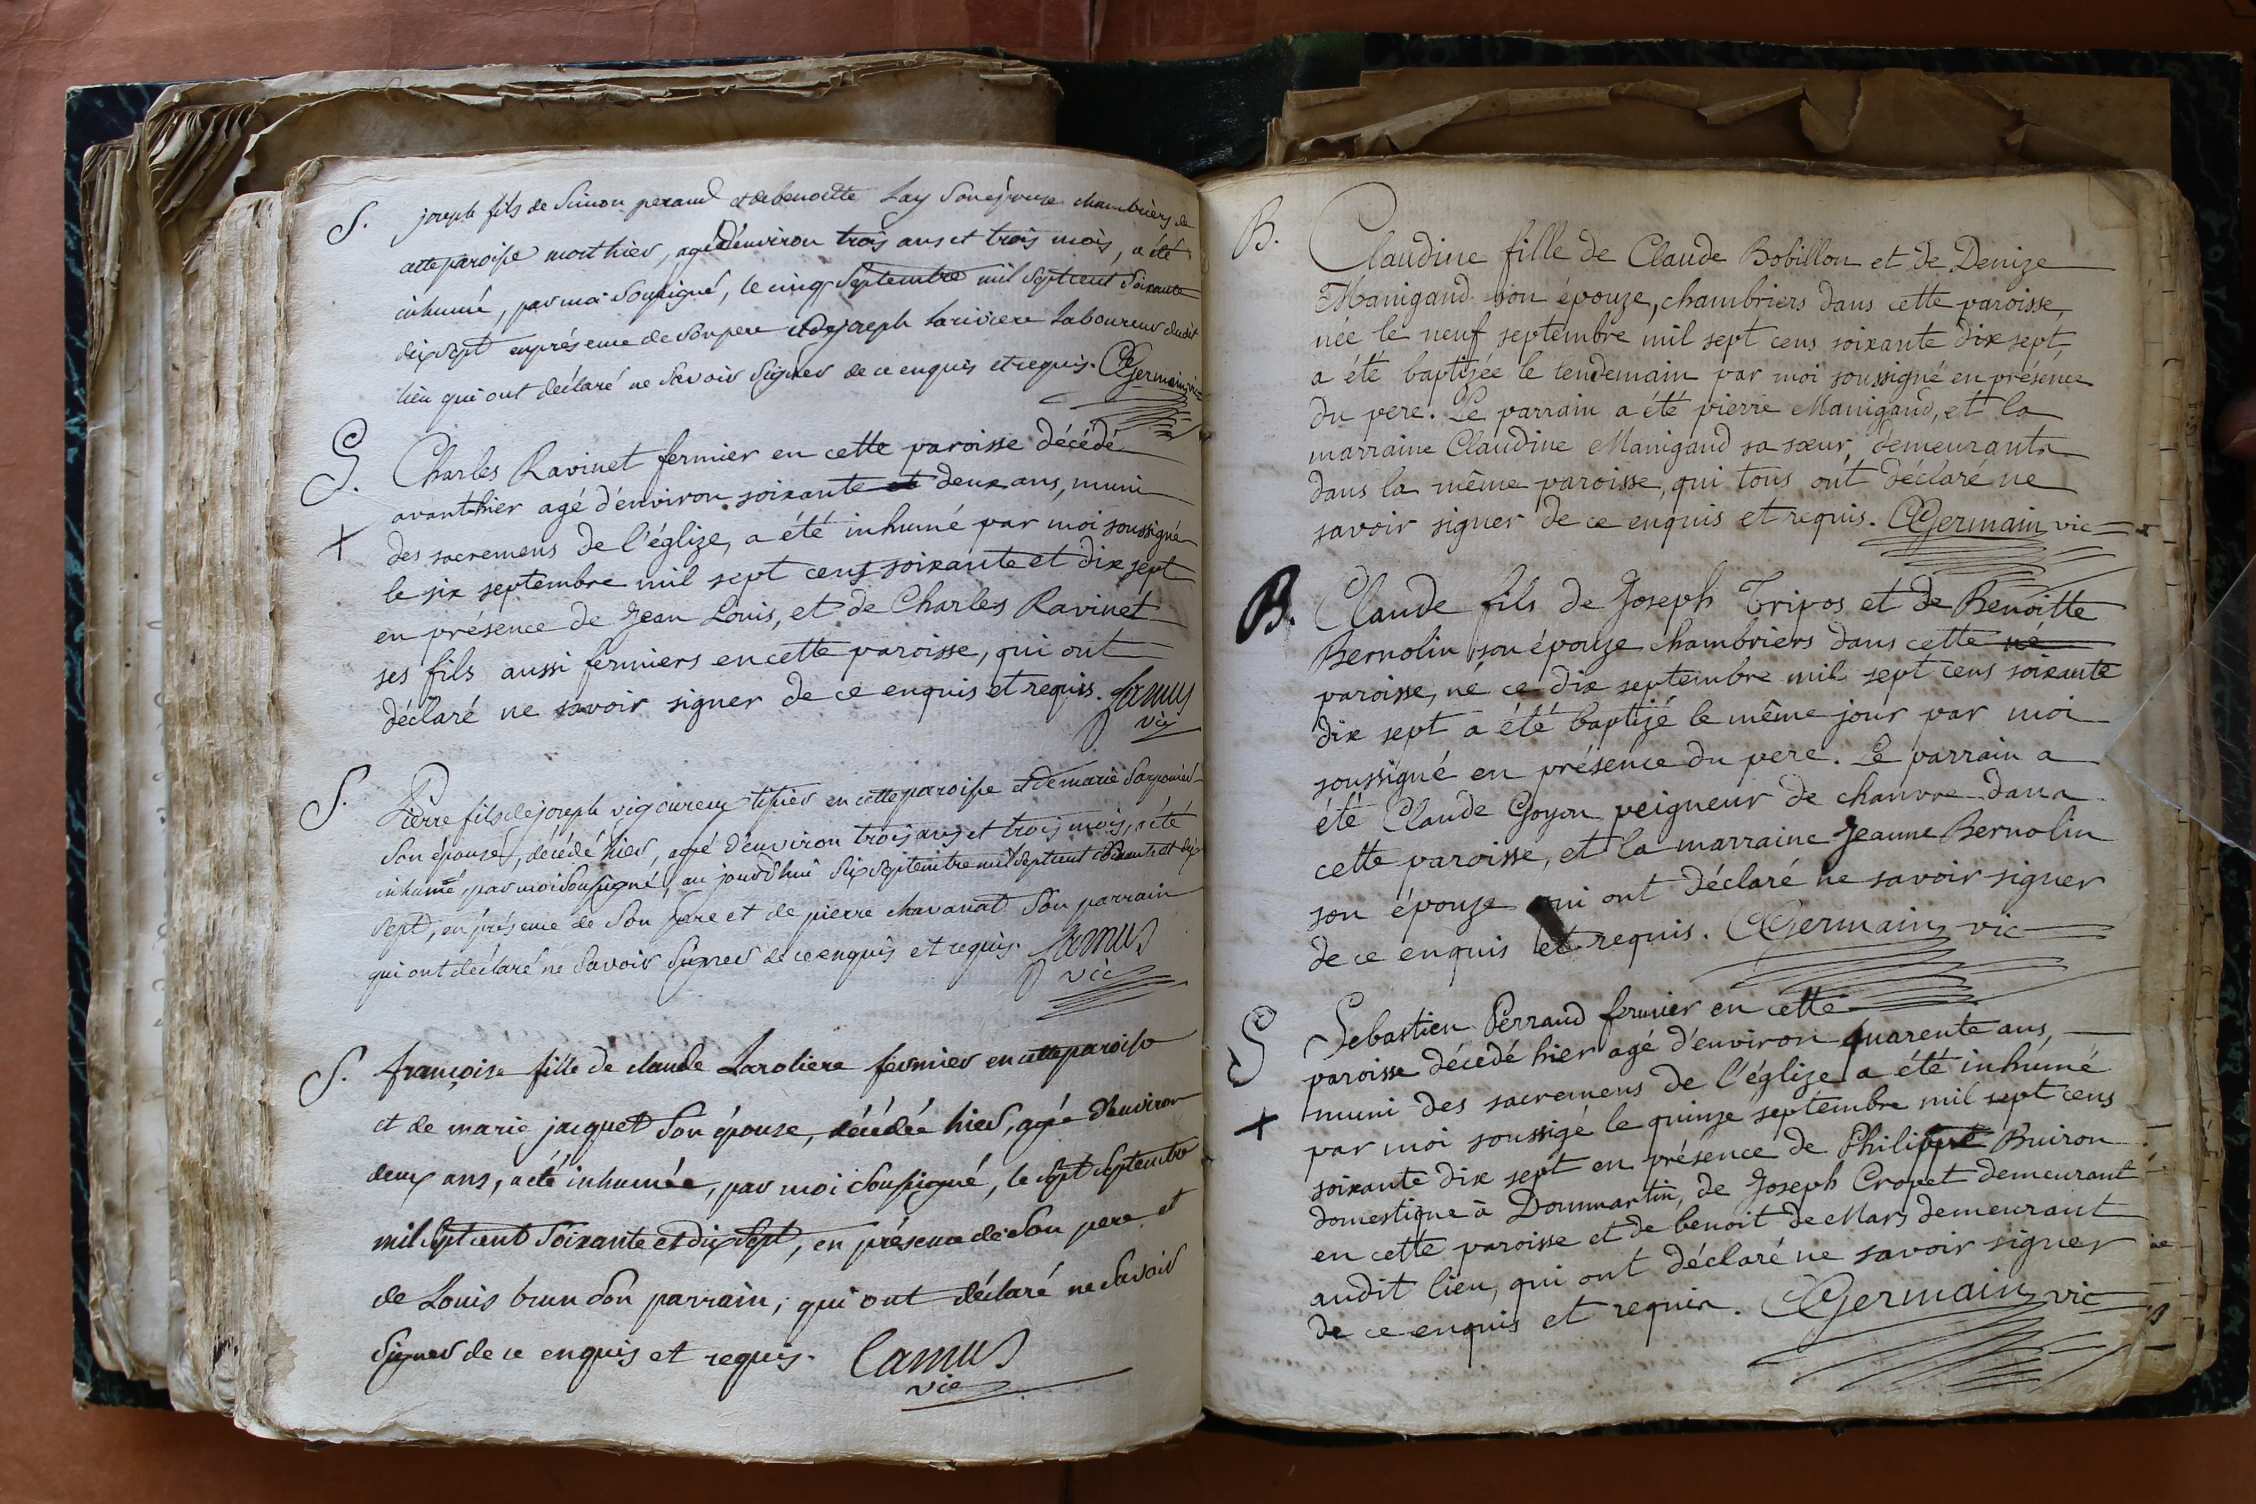 S. joseph fils de Simon peraud et de benoitte Lay son épouse chambriers de
cette paroisse mort hier, agé d'environ trois ans et trois mois, a été
inhumé, par moi soussigné, le cinq septembre mil sept cent soixante
dix sept en présence de son pere et de joseph lariviere laboureur dudit
lieu qui ont déclaré ne savoir signer de ce enquis et requis. Germain vic
S. Charles Ravinet fermier en cette paroisse décédé
avant-hier agé d'environ soixante et deux ans, muni
+ des sacremens de l'églize, a été inhumé par moi soussigné
le six septembre mil sept cens soixante et dix sept
en présence de Jean Louis, et de Charles Ravinet
ses fils aussi fermiers en cette paroisse, qui ont
déclaré ne savoir signer de ce enquis et requis. Camus
vic
S. Pierre fils de joseph vigoureux tissier en cette paroisse et de marie
son épouse, décédé hier, agé d'environ trois ans et trois mois, a été
inhumé, par moi soussigné, au jourd'hui six septembre mil sept cent soixante et dix
sept, en présence de son pere et de pierre chavanat son parrain
qui ont déclaré ne savoir signer de ce enquis et requis. Camus
vic
S. françoise fille de claude Laroliere fermier en cette paroisse
et de marie jacquet son épouse, décédée hier, agée d'environ
deux ans, a été inhumée, par moi soussigné, le sept septembre
mil sept cent soixante et dix sept, en présence de son pere et
de Louis brun son parrain, qui ont déclaré ne savoir
signer de ce enquis et requis. Camus
vic
B. Claudine fille de Claude Bobillon et de Denize
Manigand son épouze, chambriers dans cette paroisse,
née le neuf septembre mil sept cens soixante dix sept,
a été baptizée le lendemain par moi soussigné en présence
du pere. Le parrain a été pierre Manigand, et la
marraine Claudine Manigand sa sœur, demeurants
dans la même paroisse, qui tous ont déclaré ne
savoir signer de ce enquis et requis. Germain vic
B. Claude fils de Joseph Tripos et de Benoitte
Bernolin son épouze chambriers dans cette né
paroisse, né ce dix septembre mil sept cens soixante
dix sept a été baptizé le même jour par moi
soussigné en présence du pere. Le parrain a
été Claude Goyon peigneur de chanvre dans
cette paroisse, et la marraine Jeanne Bernolin
son épouze qui ont déclaré ne savoir signer
de ce enquis et requis. Germain vic
S Sebastien Perraud fermier en cette
paroisse décédé hier agé d'environ quarente ans,
muni des sacremens de l'églize a été inhumé
+ par moi soussigé le quinze septembre mil sept cens
soixante dix sept en présence de Philippe Buiron
domestique à Dommartin, de Joseph Cropet demeurant
en cette paroisse et de benoit de Mars demeurant
audit lieu, qui ont déclaré ne savoir signer
de ce enquis et requis. Germain vic